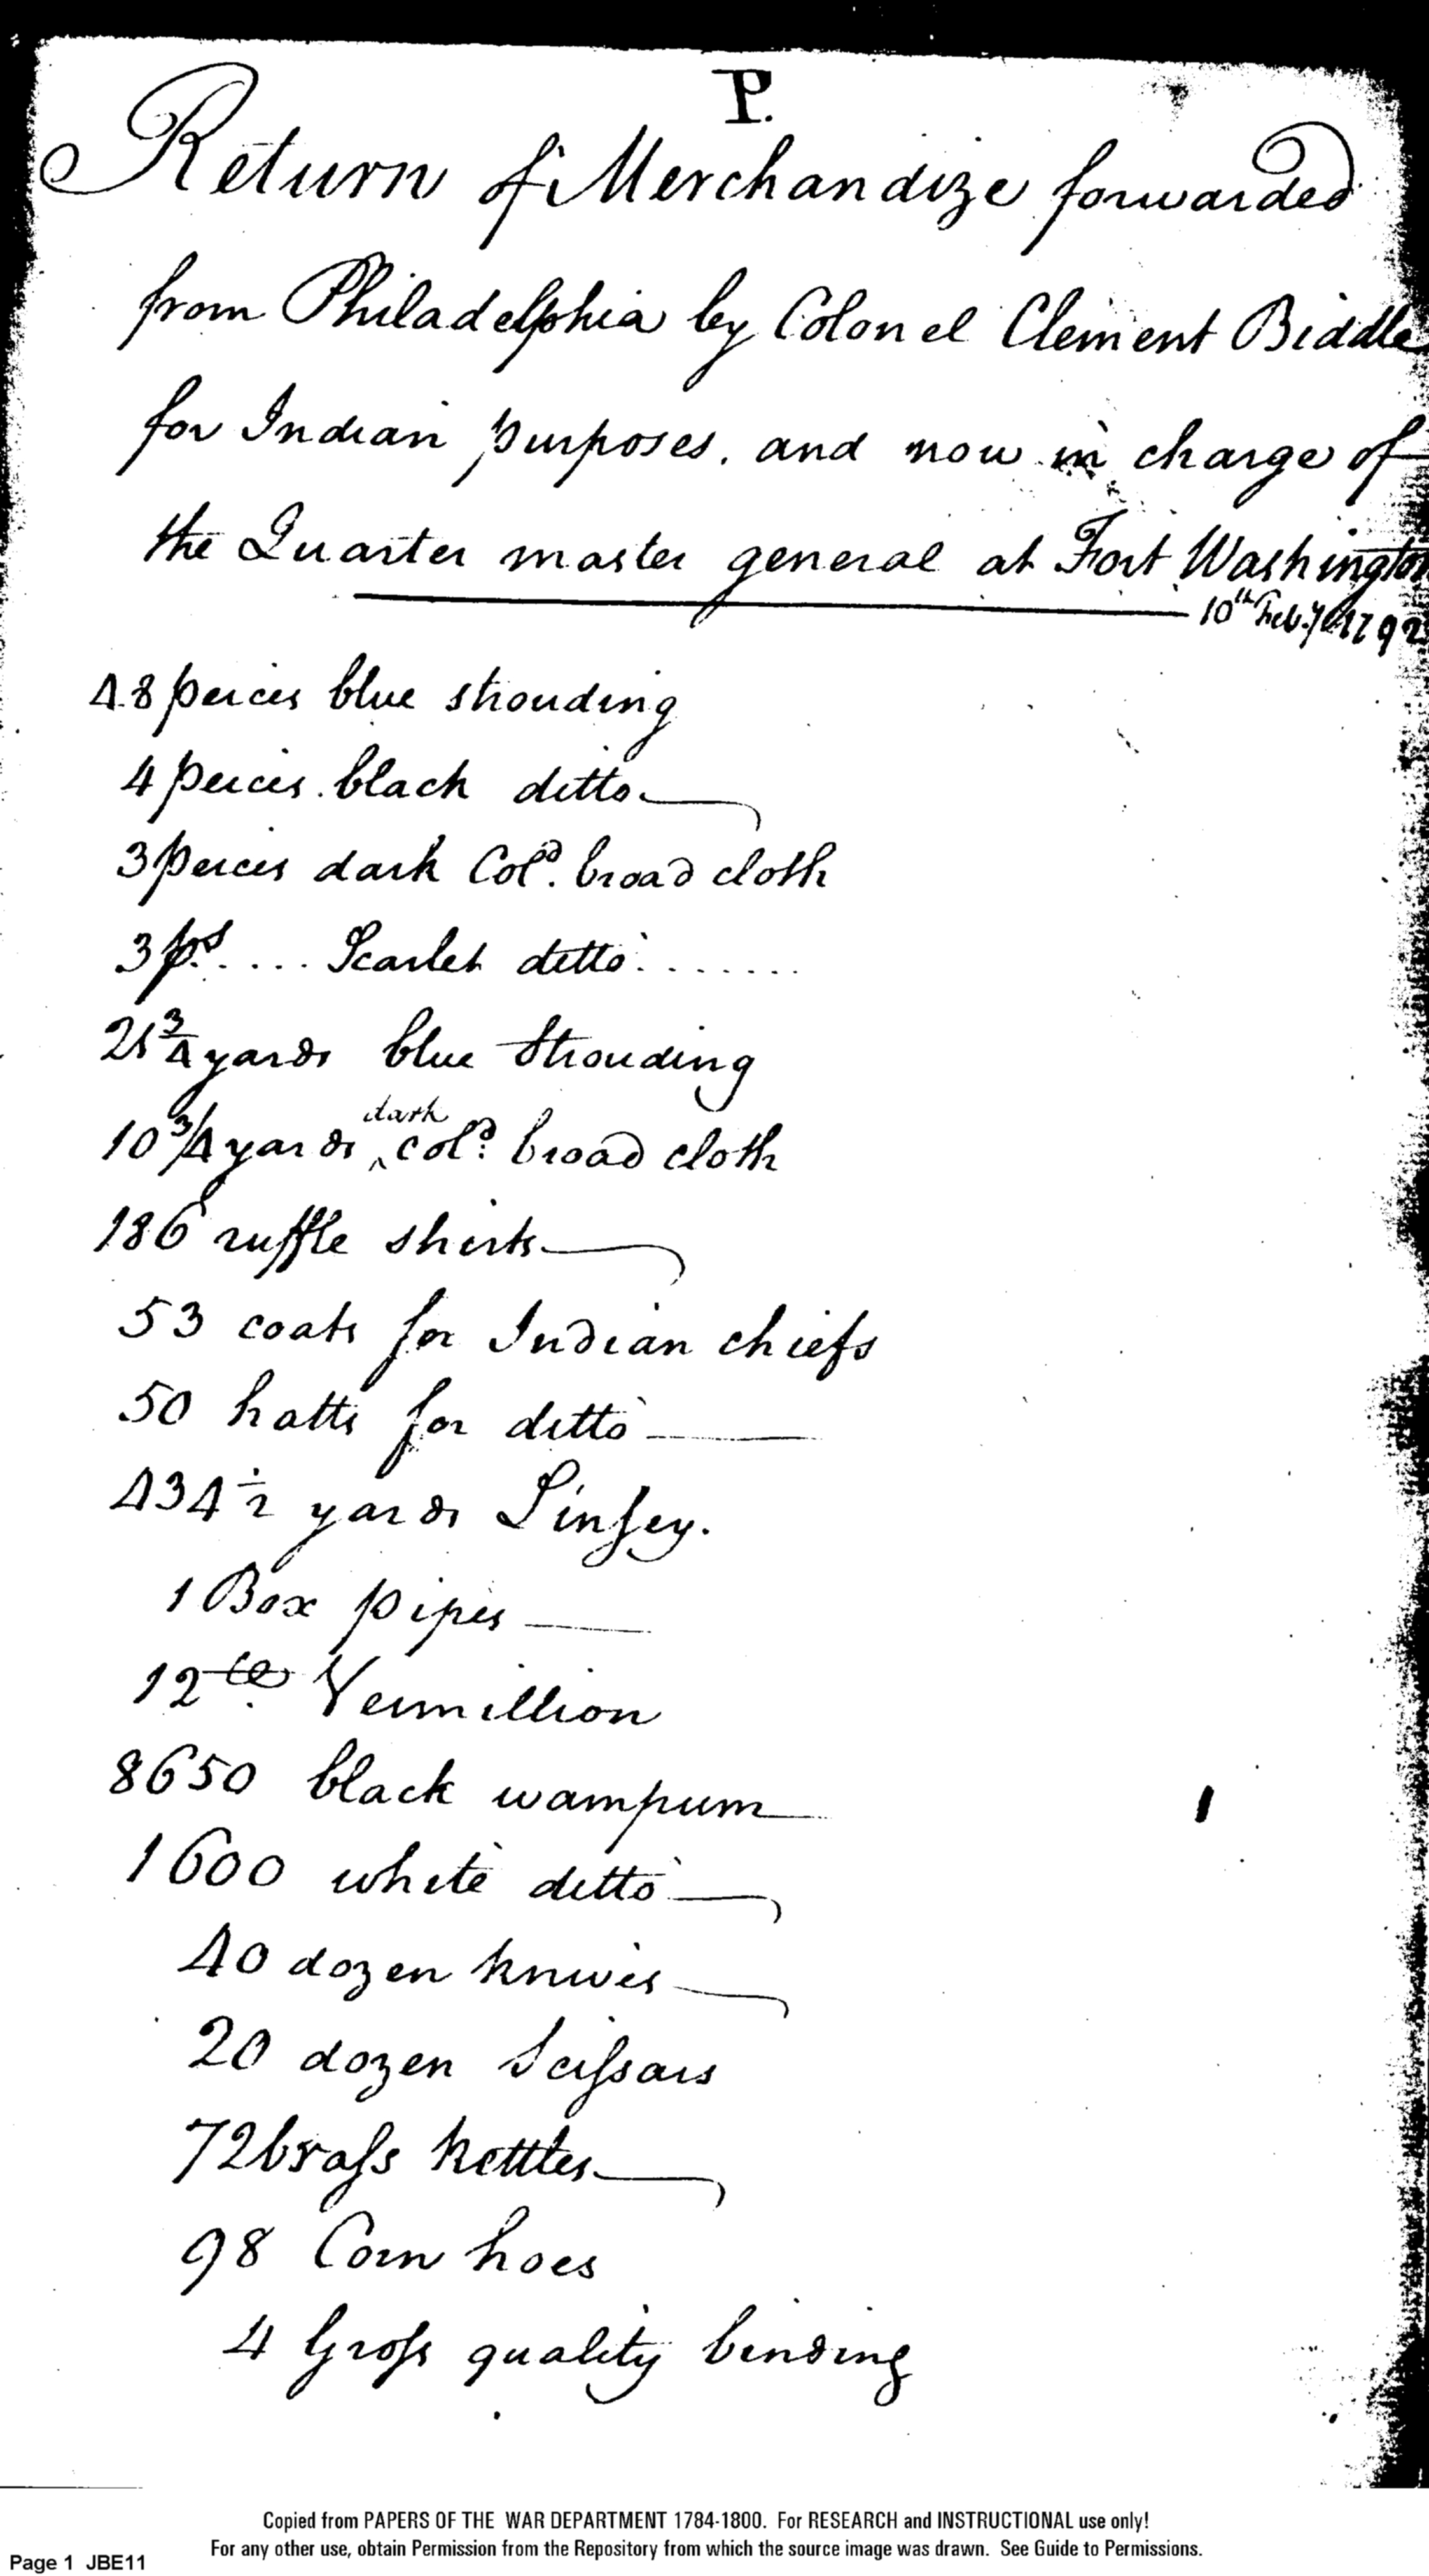 P.
Return of Merchandize forwarded
from Philadelphia by Colonel Clement Biddle
for Indian purposes, and now in charge of
the Quarter master general at Fort Washington
10th Feb.y 1792
48 peices blue strouding
4 peices black ditto
3 peices dark Cold. broad cloth
3 ps..... Scarlet ditto.......
21 3/4 yards blue Strouding
10 3/4 yards ^dark cold. broad cloth
186 ruffle shirts
53 coats for Indian chiefs
50 hatts for ditto
434 1/2 yards Linsey.
1 Box pipes
12 lb. Vermillion
8650 black wampum
1600 white ditto
40 dozen knives
20 dozen Scissars
72 brass kettles
98 Corn hoes
4 Gross quality binding
Copied from PAPERS OF THE WAR DEPARTMENT 1784-1800. For RESEARCH and INSTRUCTIONAL use only!
For any other use, obtain Permission from the Repository from which the source image was drawn. See Guide to Permissions.
Page 1 JBE11